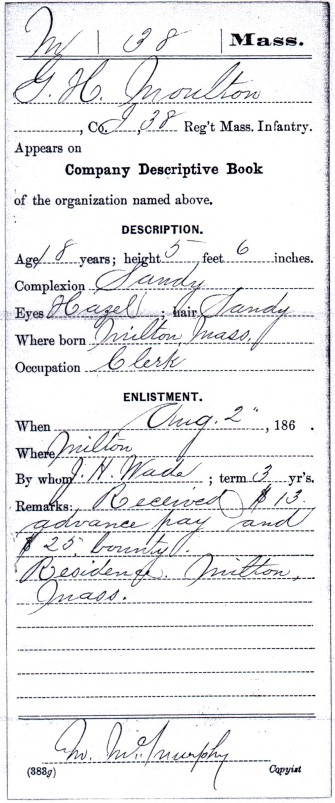 M | 38 | Mass.
G. H. Moulton
, Co. I, 38 Reg't Mass. Infantry.
Appears on
Company Descriptive Book
of the organization named above.
DESCRIPTION.
Age 18 years; height 5 feet 6 inches.
Complexion Sandy
Eyes Hazel; hair Sandy
Where born Milton, Mass.
Occupation Clerk
ENLISTMENT.
When Aug. 2", 186 .
Where Milton
By whom J. H. Wade; term 3 yr's.
Remarks: Received $13.
advance pay and
$25, bounty.
Residence. Milton,
Mass.
M. McMurphy
(383g) Copyist